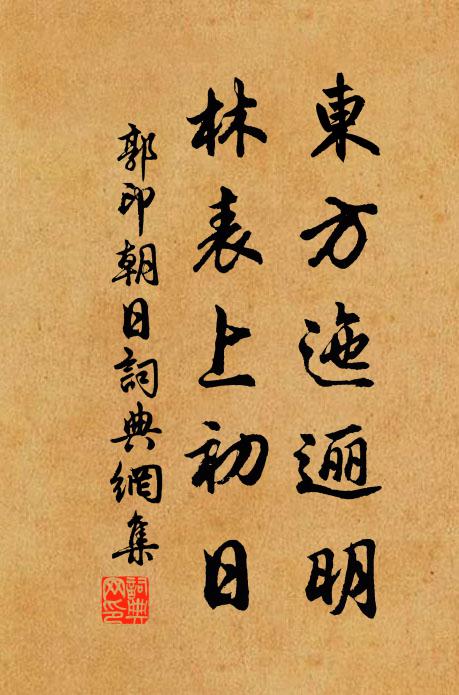 東方迤逦明
林表上初日
郭印朝日詞典網集
詞典网印